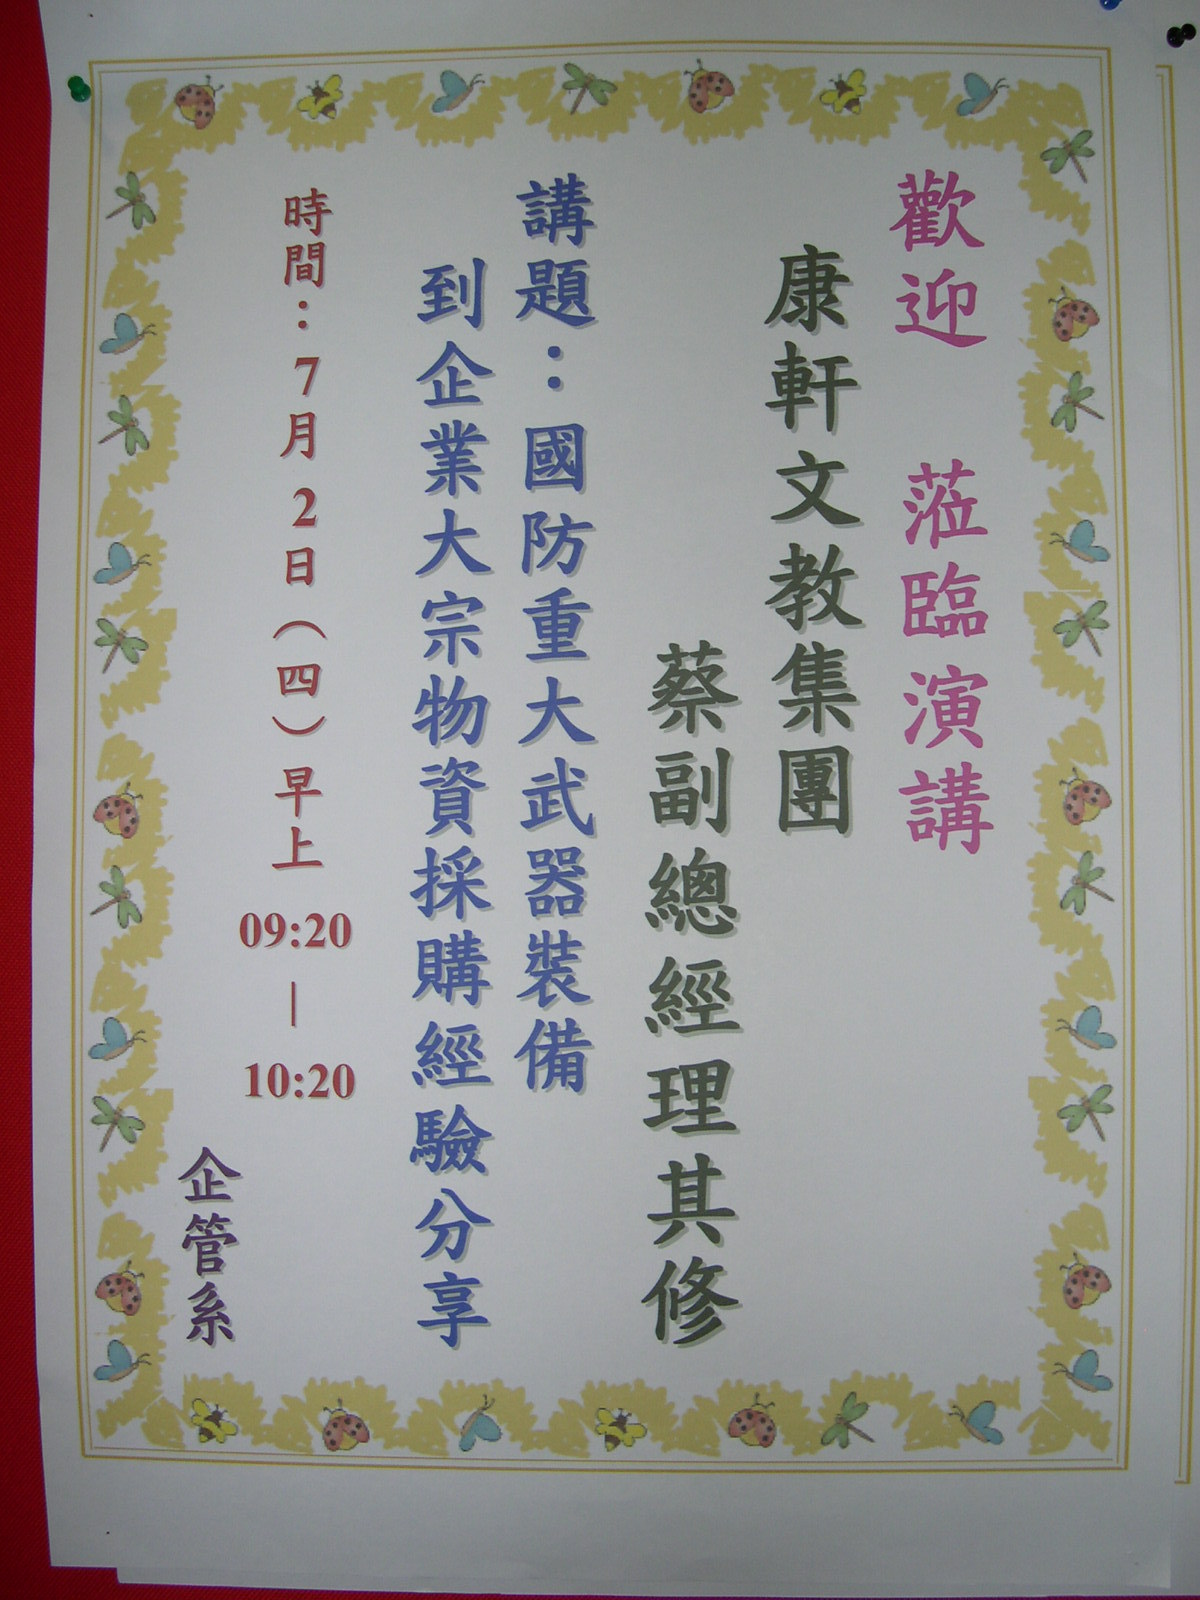 歡迎 蒞臨演講
康軒文教集團
蔡副總經理其修
講題：國防重大武器裝備
到企業大宗物資採購經驗分享
時間：7月2日（四）早上 09:20 — 10:20
企管系